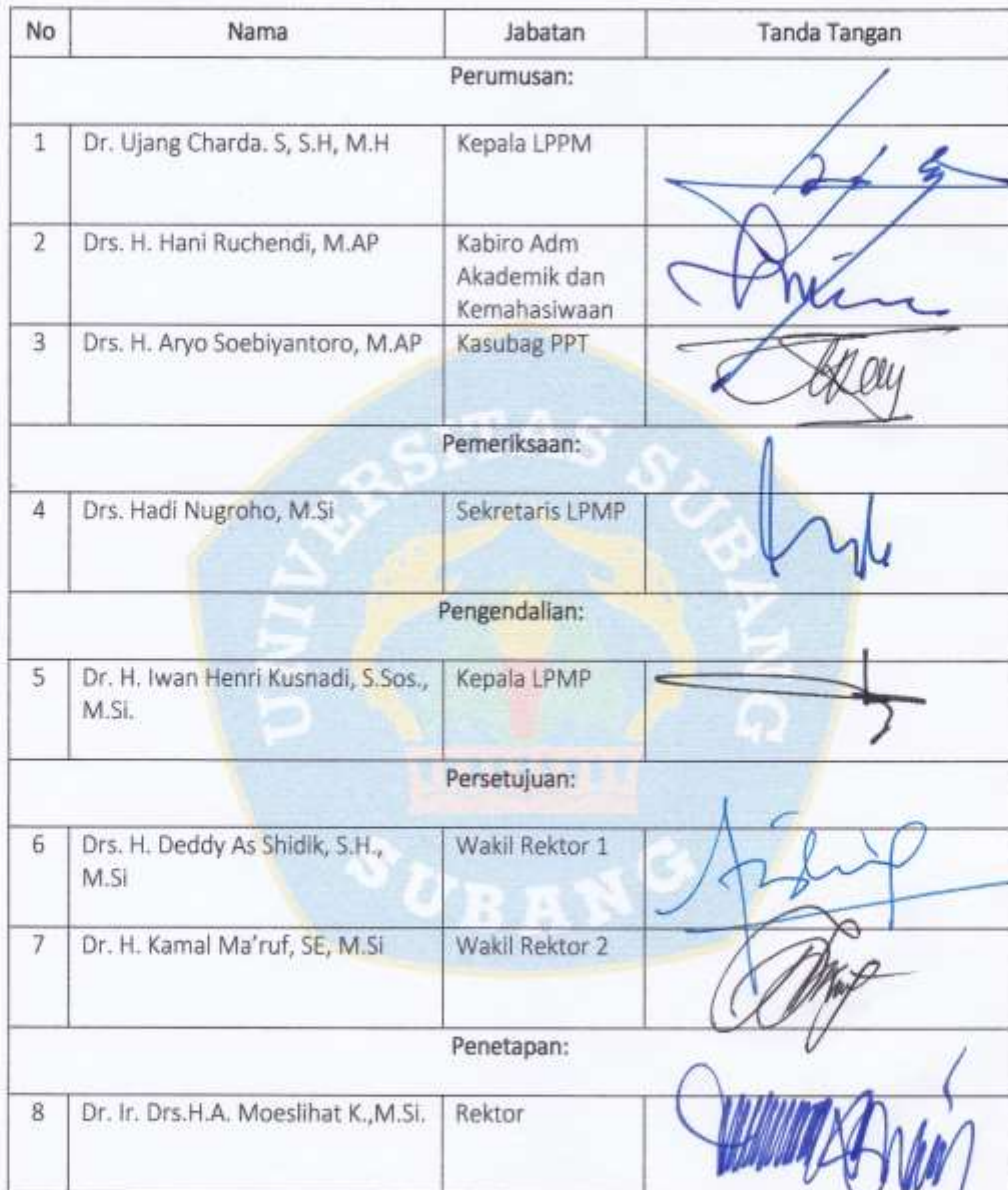 No Nama Jabatan Tanda Tangan
Perumusan:
1 Dr. Ujang Charda. S, S.H, M.H Kepala LPPM
2 Drs. H. Hani Ruchendi, M.AP Kabiro Adm
Akademik dan
Kemahasiwaan
3 Drs. H. Aryo Soebiyantoro, M.AP Kasubag PPT
Pemeriksaan:
4 Drs. Hadi Nugroho, M.Si Sekretaris LPMP
Pengendalian:
5 Dr. H. Iwan Henri Kusnadi, S.Sos., Kepala LPMP
M.Si.
Persetujuan:
6 Drs. H. Deddy As Shidik, S.H., Wakil Rektor 1
M.Si
7 Dr. H. Kamal Ma'ruf, SE, M.Si Wakil Rektor 2
Penetapan:
8 Dr. Ir. Drs.H.A. Moeslihat K.,M.Si. Rektor
UNIVERSITAS SUBANG
SUBANG